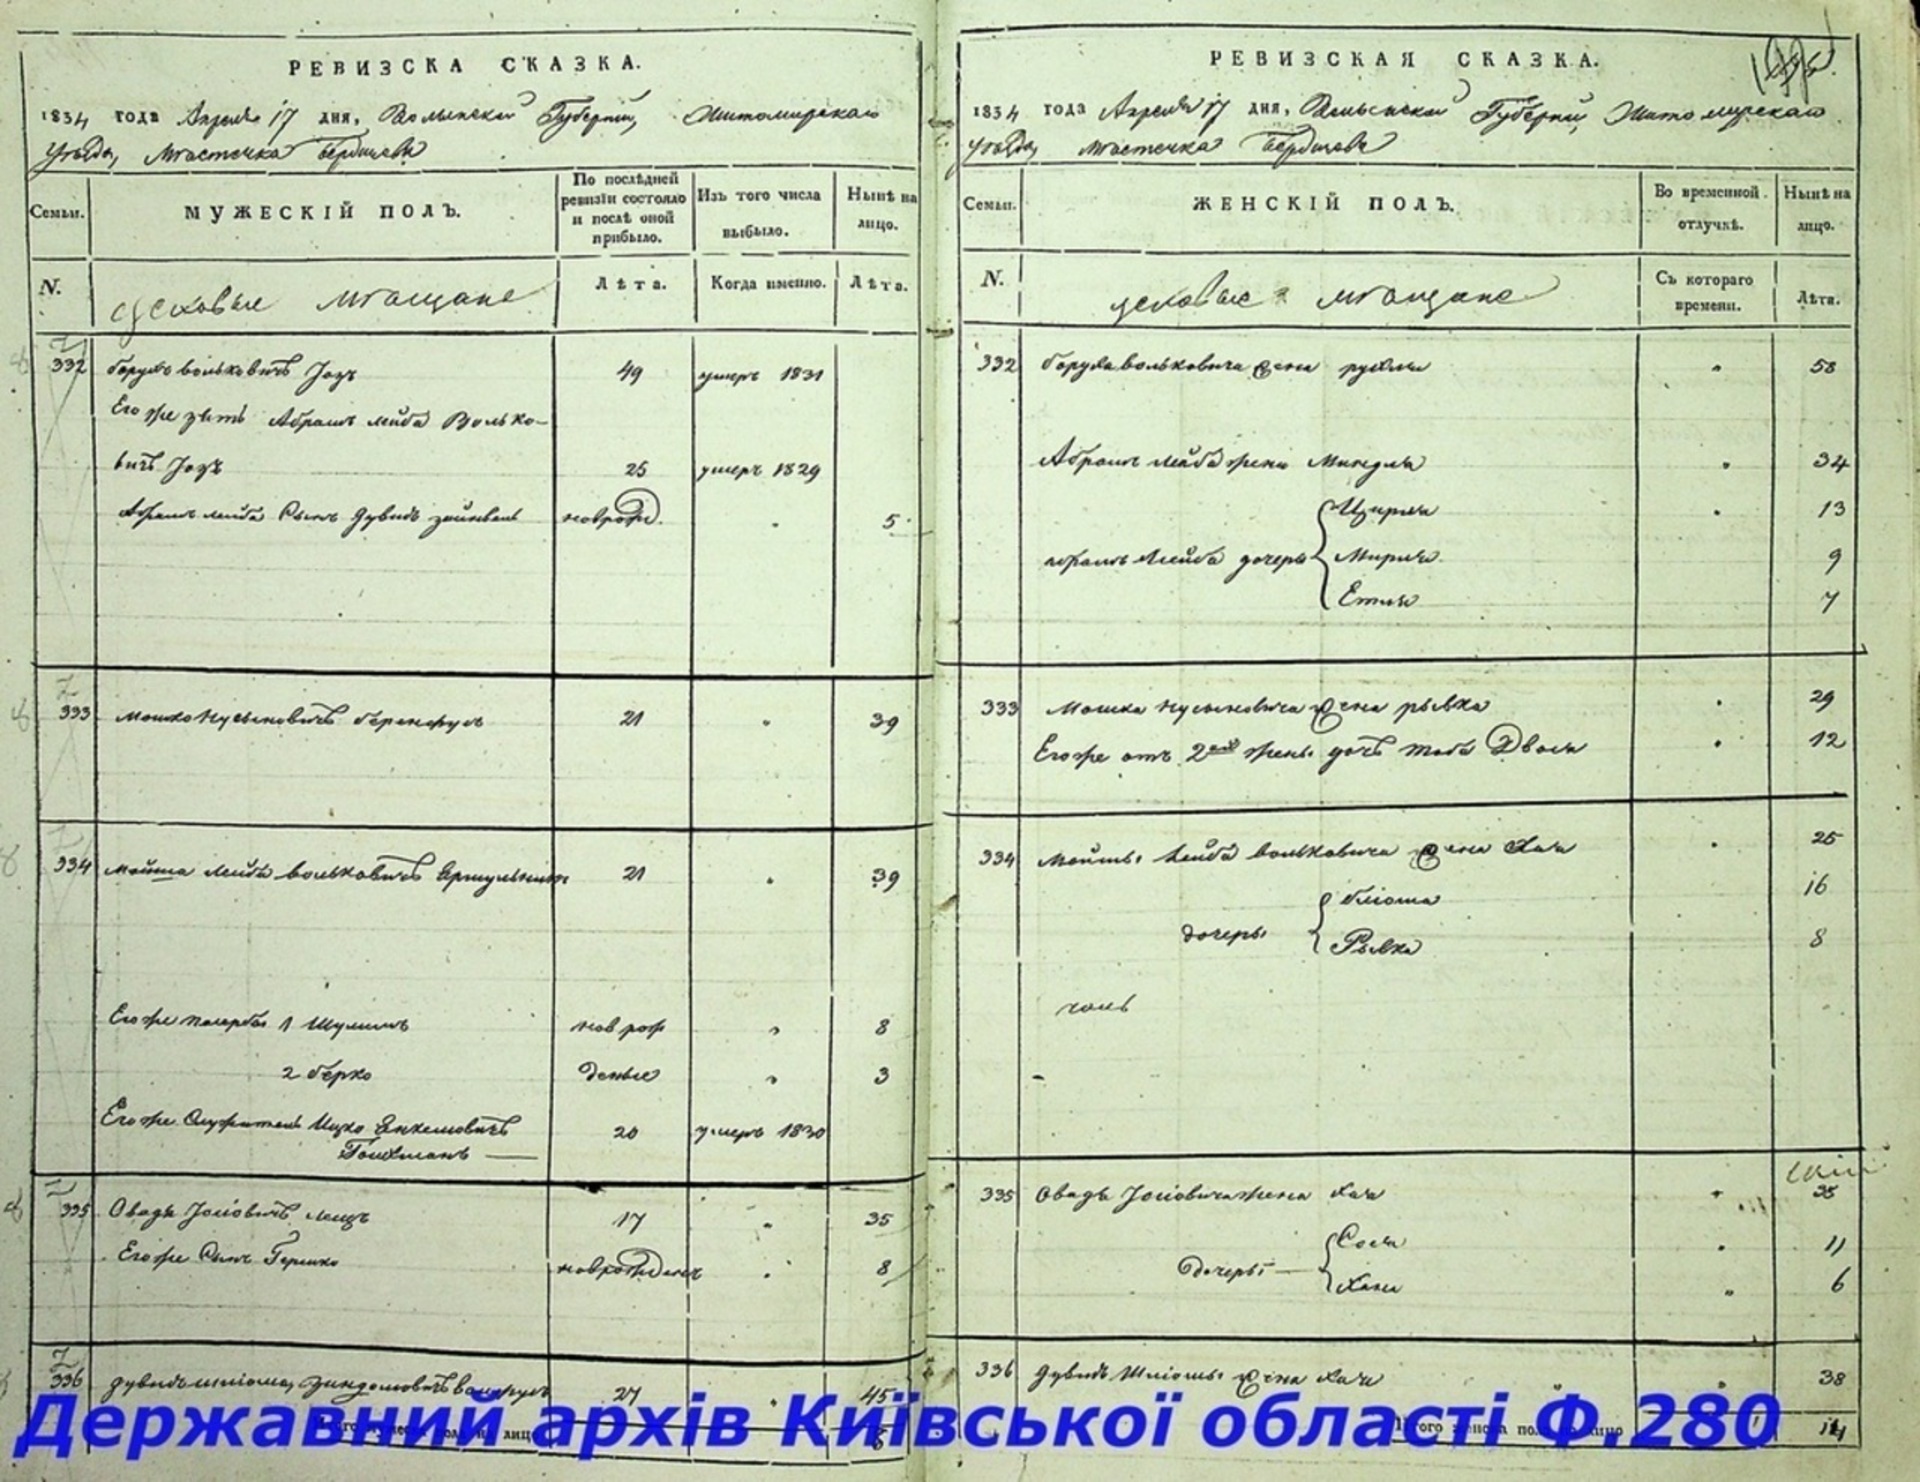 РЕВИЗСКА СКАЗКА.
1834 года Апреля 17 дня, Волынской Губернии, Житомирскаго
Уѣзда, Мѣстечка Бердичева
Семьи.
МУЖЕСКІЙ ПОЛЪ.
По послѣдней ревизіи состояло и послѣ оной прибыло.
Изъ того числа выбыло.
Нынѣ на лицо.
N.
цеховые мѣщане
Лѣта.
Когда именно.
Лѣта.
332 Борухъ Вольковичъ 49 умеръ 1831
Его же зять Абрамъ Лейба Волько-
вичъ 25 умеръ 1829
Абрамъ Лейба Сынъ Дувидъ Зейнвель новрожд. 5
333 Мошко Нусыновичъ 21 39
334 Мойша Лейба Вольковичъ 21 39
Его же 1 Шулимъ нов рож 8
2 Берко деные 3
Его же Служитель Ицко Янкелiовичъ 20 умеръ 1830
335 Овадь Лещъ 17 35
Его же Сынъ Гершко новрожденъ 8
336 Дувидъ Шліома 27 45
РЕВИЗСКАЯ СКАЗКА.
1834 года Апреля 17 дня, Волынской Губерніи, Житомирскаго
Уѣзда, Мѣстечка Бердичева
Семьи.
ЖЕНСКІЙ ПОЛЪ.
Во временной отлучкѣ.
Нынѣ на лицо.
N.
цеховые мѣщане
Съ котораго времени.
Лѣта.
332 Боруха Вольковича жена Рухля 58
Абрамъ Лейба жена Миндля 34
Ципра 13
Абрамъ Лейба дочеры Мириля 9
Етля 7
333 Мошка Нусыновича жена Рывка 29
Его же отъ 2ой жены дочь Тоба Двося 12
334 Мойшы Лейба Вольковича жена Хая 25
бліома 16
дочеры
Рывка 8
335 Овадь жена Хая 35
Сося 11
Дочеры
Хана 6
336 Дувидъ Шліомы жена Хая 38
Итого женска пола на лицо 14
Державний архів Київської області Ф.280